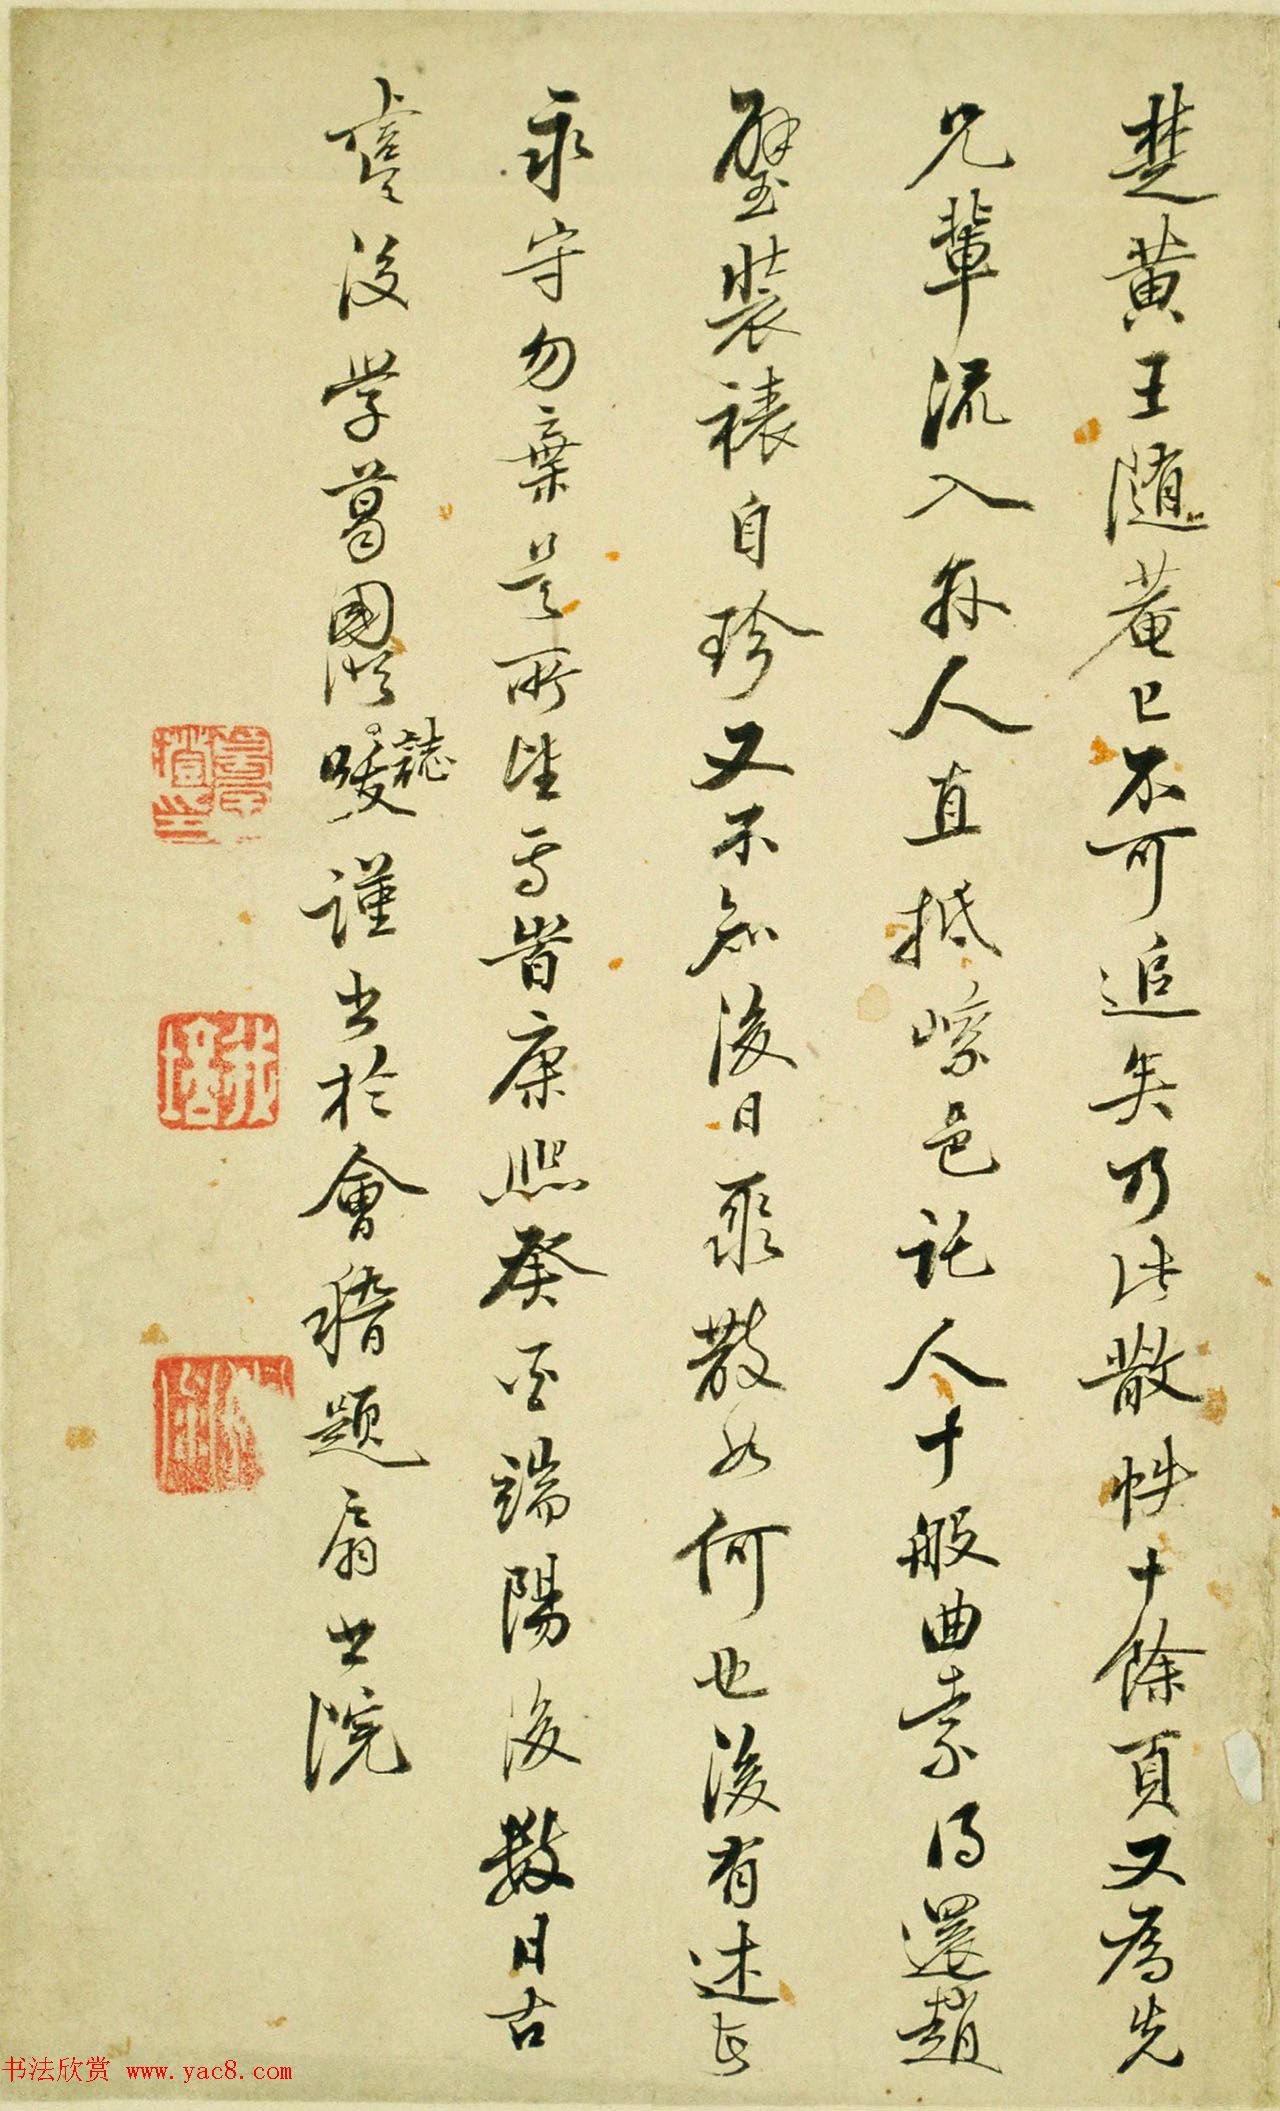 楚黄王随菴已不可追矣乃此散帙十餘頁又為先
兄輩流入人直抵嵊邑託人十般曲索得還趙
璧装裱自珍又不知後日聚散如何也後有述者
永守勿棄是所望焉旹康熙癸酉端陽後數日古
虞後學葛國誌謹書於會稽題扇書院
书法欣赏 www.yac8.com